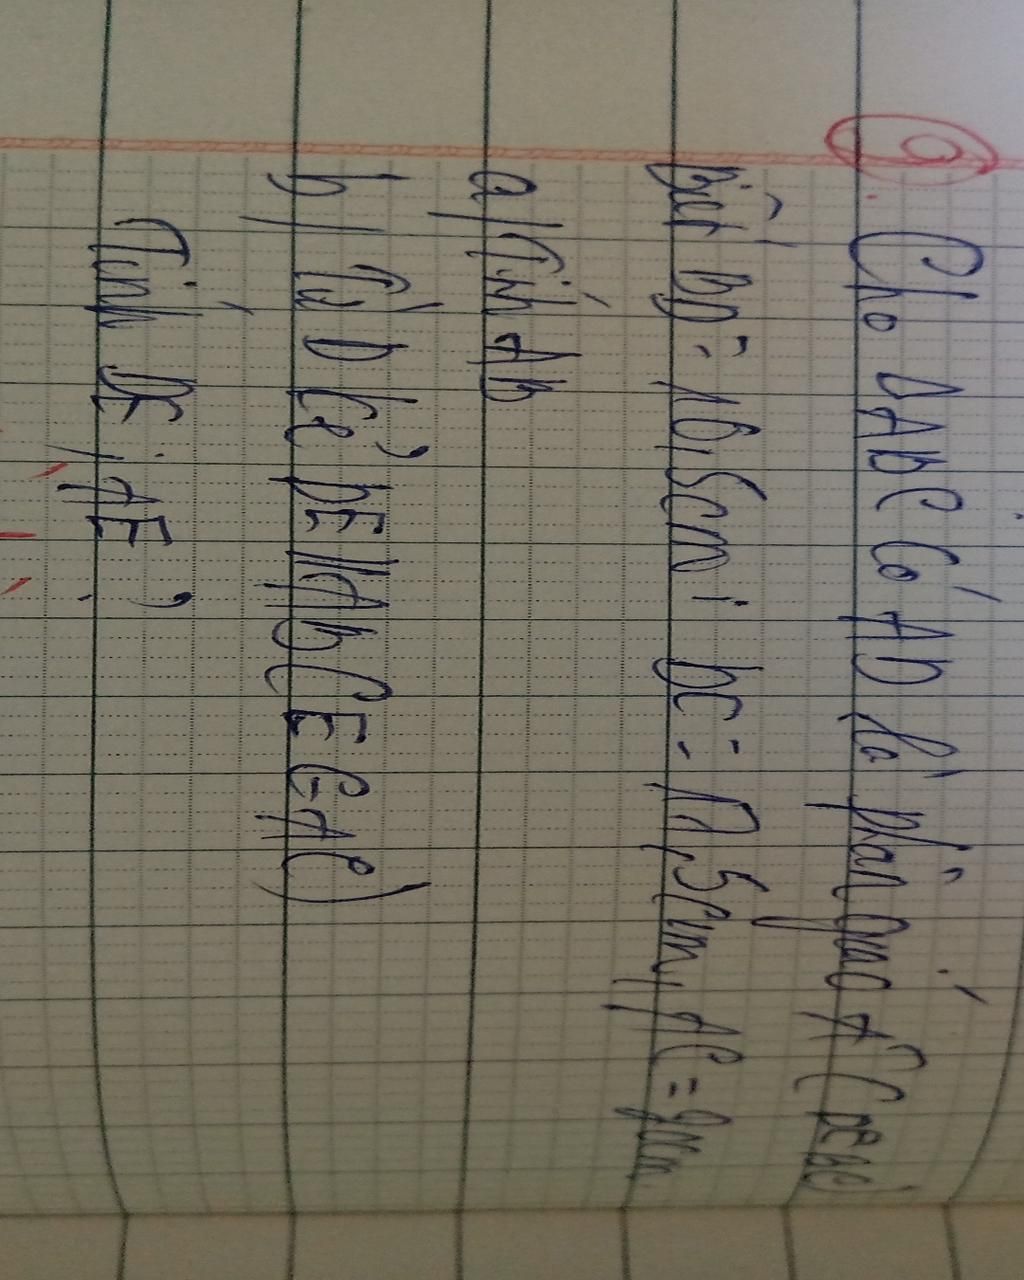 Cho ΔABC Có AD là phân giác A (DEBC)
Biết BD = 16,5cm; BC = 17,5cm, AC = 9cm
a/ Tính AB
b/ Từ D kẻ DE//AB (E ∈ AC)
Tính DE; AE?